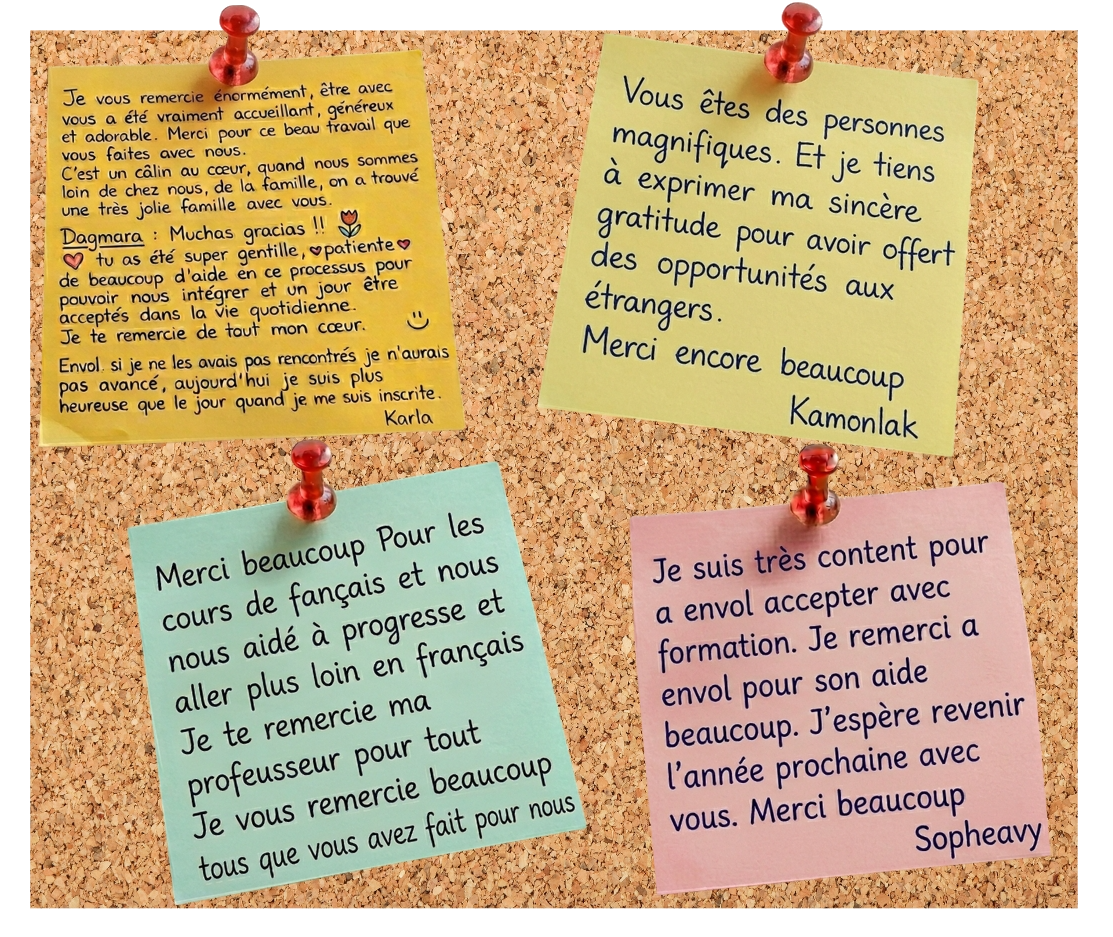 Je vous remercie énormément, être avec
vous a été vraiment accueillant, généreux
et adorable. Merci pour ce beau travail que
vous faites avec nous.
C'est un câlin au cœur, quand nous sommes
loin de chez nous, de la famille, on a trouvé
une très jolie famille avec vous.
Dagmara : Muchas gracias !!
tu as été super gentille, ♥patiente♥
de beaucoup d'aide en ce processus pour
pouvoir nous intégrer et un jour être
acceptés dans la vie quotidienne.
Je te remercie de tout mon cœur.
Envol. si je ne les avais pas rencontrés je n'aurais
pas avancé, aujourd'hui je suis plus
heureuse que le jour quand je me suis inscrite.
Karla
Vous êtes des personnes
magnifiques. Et je tiens
à exprimer ma sincère
gratitude pour avoir offert
des opportunités aux
étrangers.
Merci encore beaucoup
Kamonlak
Merci beaucoup Pour les
cours de fançais et nous
nous aidé à progresse et
aller plus loin en français
Je te remercie ma
profeusseur pour tout
Je vous remercie beaucoup
tous que vous avez fait pour nous
Je suis très content pour
a envol accepter avec
formation. Je remerci a
envol pour son aide
beaucoup. J'espère revenir
l'année prochaine avec
vous. Merci beaucoup
Sopheavy